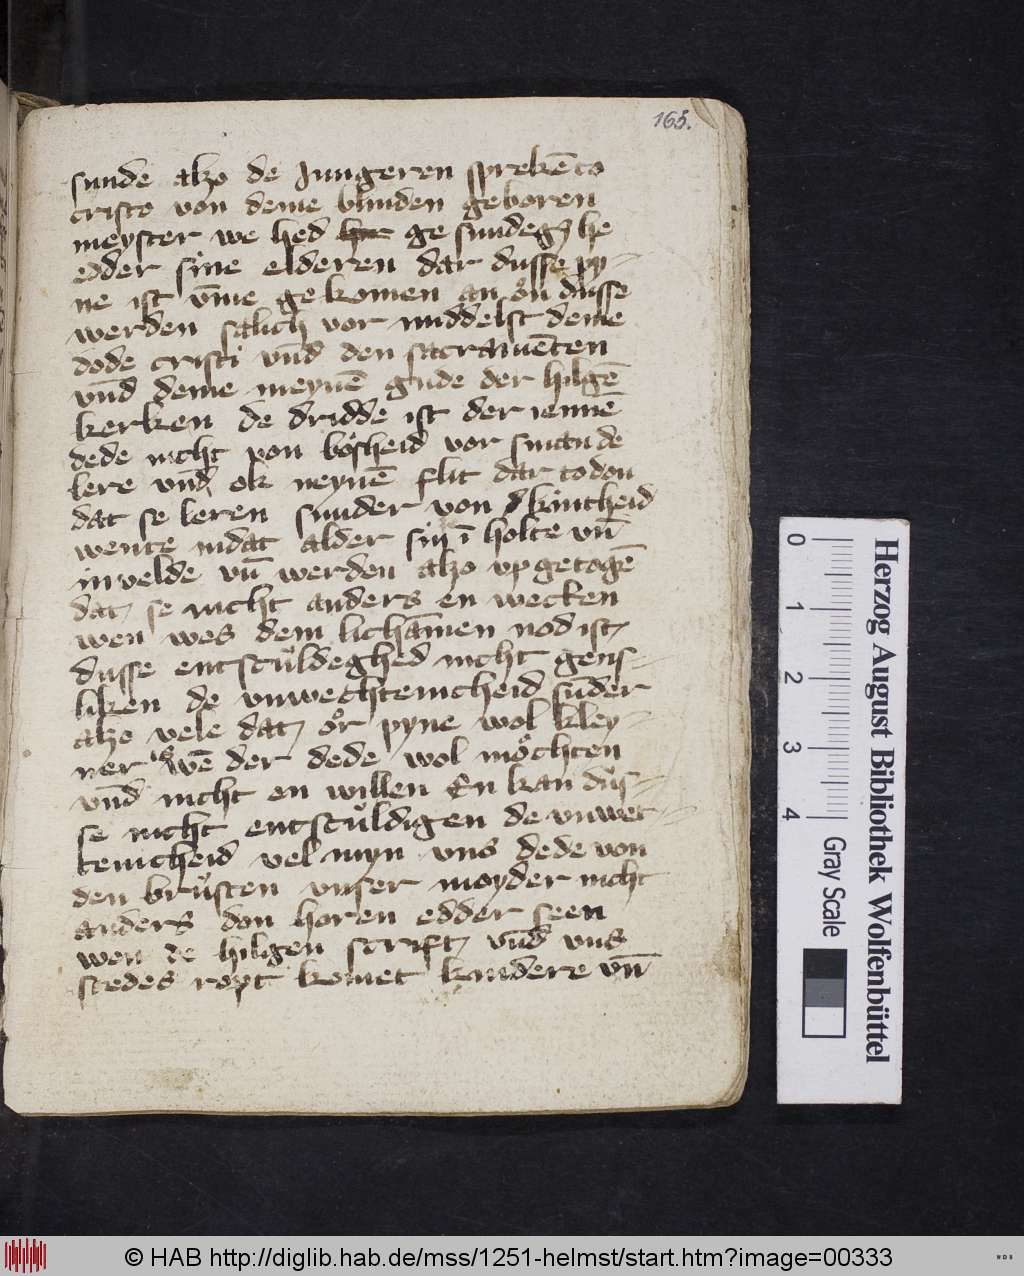 165.
sunde alzo de Jungeren sprekē to
cristo von deme blinden geboren
meyster we hed ge sundeget he
edder sine elderen dar dusse py-
ne ist vme ge komen an ön dusse
werden salich vor middelst deme
dode cristi vnd den sacramēten
vnd deme meynē gude der hilgē
kerken de dridde ist der iennē
dede nicht von bösheid vor sman de
lere vnd ok neynē flit dar to don
dat se leren sunder von kintheid
wente in dat alder sin ī holte vn̄
in velde vn̄ werden alzo vp getogē
dat se nicht anders en wecken
wen wes dem lichāmen nod ist
dusse entschüldeghed nicht gens-
liken de vnwechtenicheid sūder
alzo vele dat ör pyne wol kley-
ner is wē der dede wol möchten
vnd nicht en willen En kan dus-
se nicht entscüldigen de vnwet-
tenicheid vel myn vns dede von
den brüsten vnser moyder nicht
anders don horen edder seen
wen de hiligen scrift vnd vns
stedes ropt komet kindere vn̄
0 1 2 3 4
Gray Scale
Herzog August Bibliothek Wolfenbüttel
© HAB http://diglib.hab.de/mss/1251-helmst/start.htm?image=00333